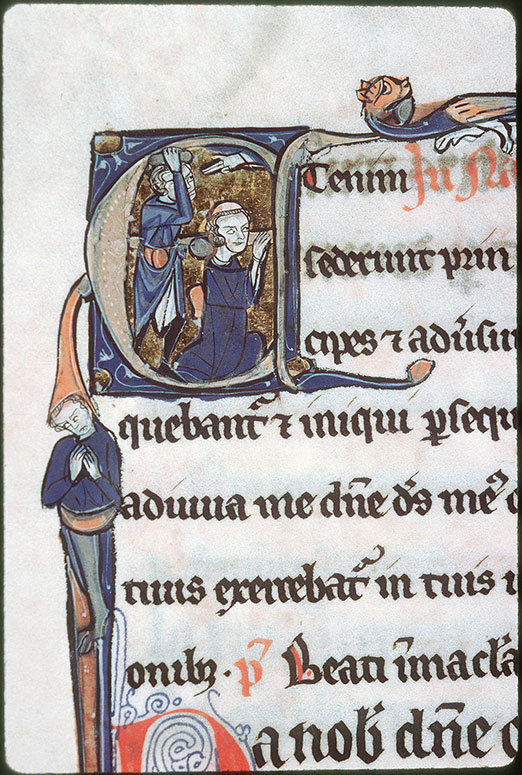 ETenim In Na
sederunt prin
cipes ⁊ adūsū
quebant᷑ ⁊ iniqui ꝑsequ
adiuua me dn̄e ds̄ meꝰ
tuus exercebat᷑ in tuis i
onibꝫ. p̄ Beati īmacl̄a
Da nob̄ dn̄e